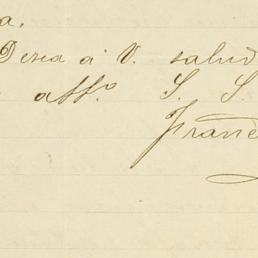 a.
Desea á V. salud
affo. S. S.
Franc